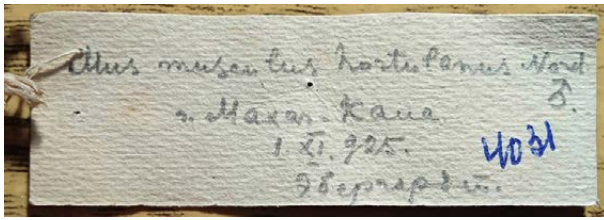 Mus musculus hortulanus Nord
♂.
г. Махач-Кала
1.XI.925.
4031